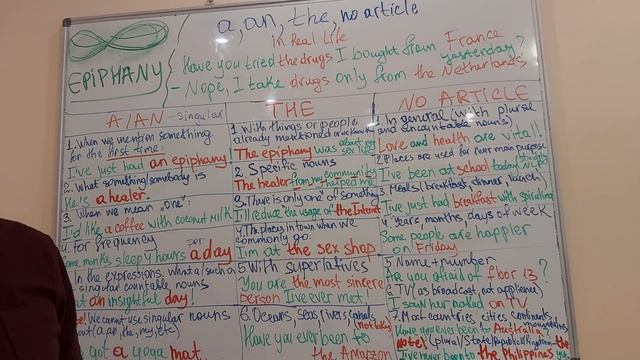 a, an, the, no article
in Real Life
EPIPHANY
Have you tried the drugs I bought from France yesterday?
- Nope, I take drugs only from the Netherlands
A/AN - singular
1. When we mention something
for the first time:
I've just had an epiphany!
2. What something/somebody is
He's a healer.
3. When we mean "one":
I'd like a coffee with coconut milk
4. for frequency
sleepy hours a day
In the expressions: What a, such a
singular countable nouns
an insightful day!
We cannot use singular nouns
got a yoga mat.
THE
1. With things or people
already mentioned
The epiphany was about my
sex life
2. Specific nouns
The healer from my community
helped me
3. There is only one of something
I'll reduce the usage of the Internet
4. The places in town where we
commonly go:
I'm at the sex shop
5. With superlatives
You are the most sincere
person I've ever met!
6. Oceans, seas, rivers, canals
(not lakes)
Have you ever been to
the Amazon
NO ARTICLE
1. In general (with plural
and uncountable nouns)
Love and health are vital!
2. Places are used for their main purpose
I've been at school today
3. Meals (breakfast, dinner, lunch)
I've just had breakfast with
4. Years, months, days of week
Some people are happier
on Friday
5. Name + number
Are you afraid of floor 13?
6. TV (as broadcast, not appliance)
I saw her naked on TV
7. Most countries, cities, continents,
mountains
Have you ever been to Australia?
I've never been to the Philippines